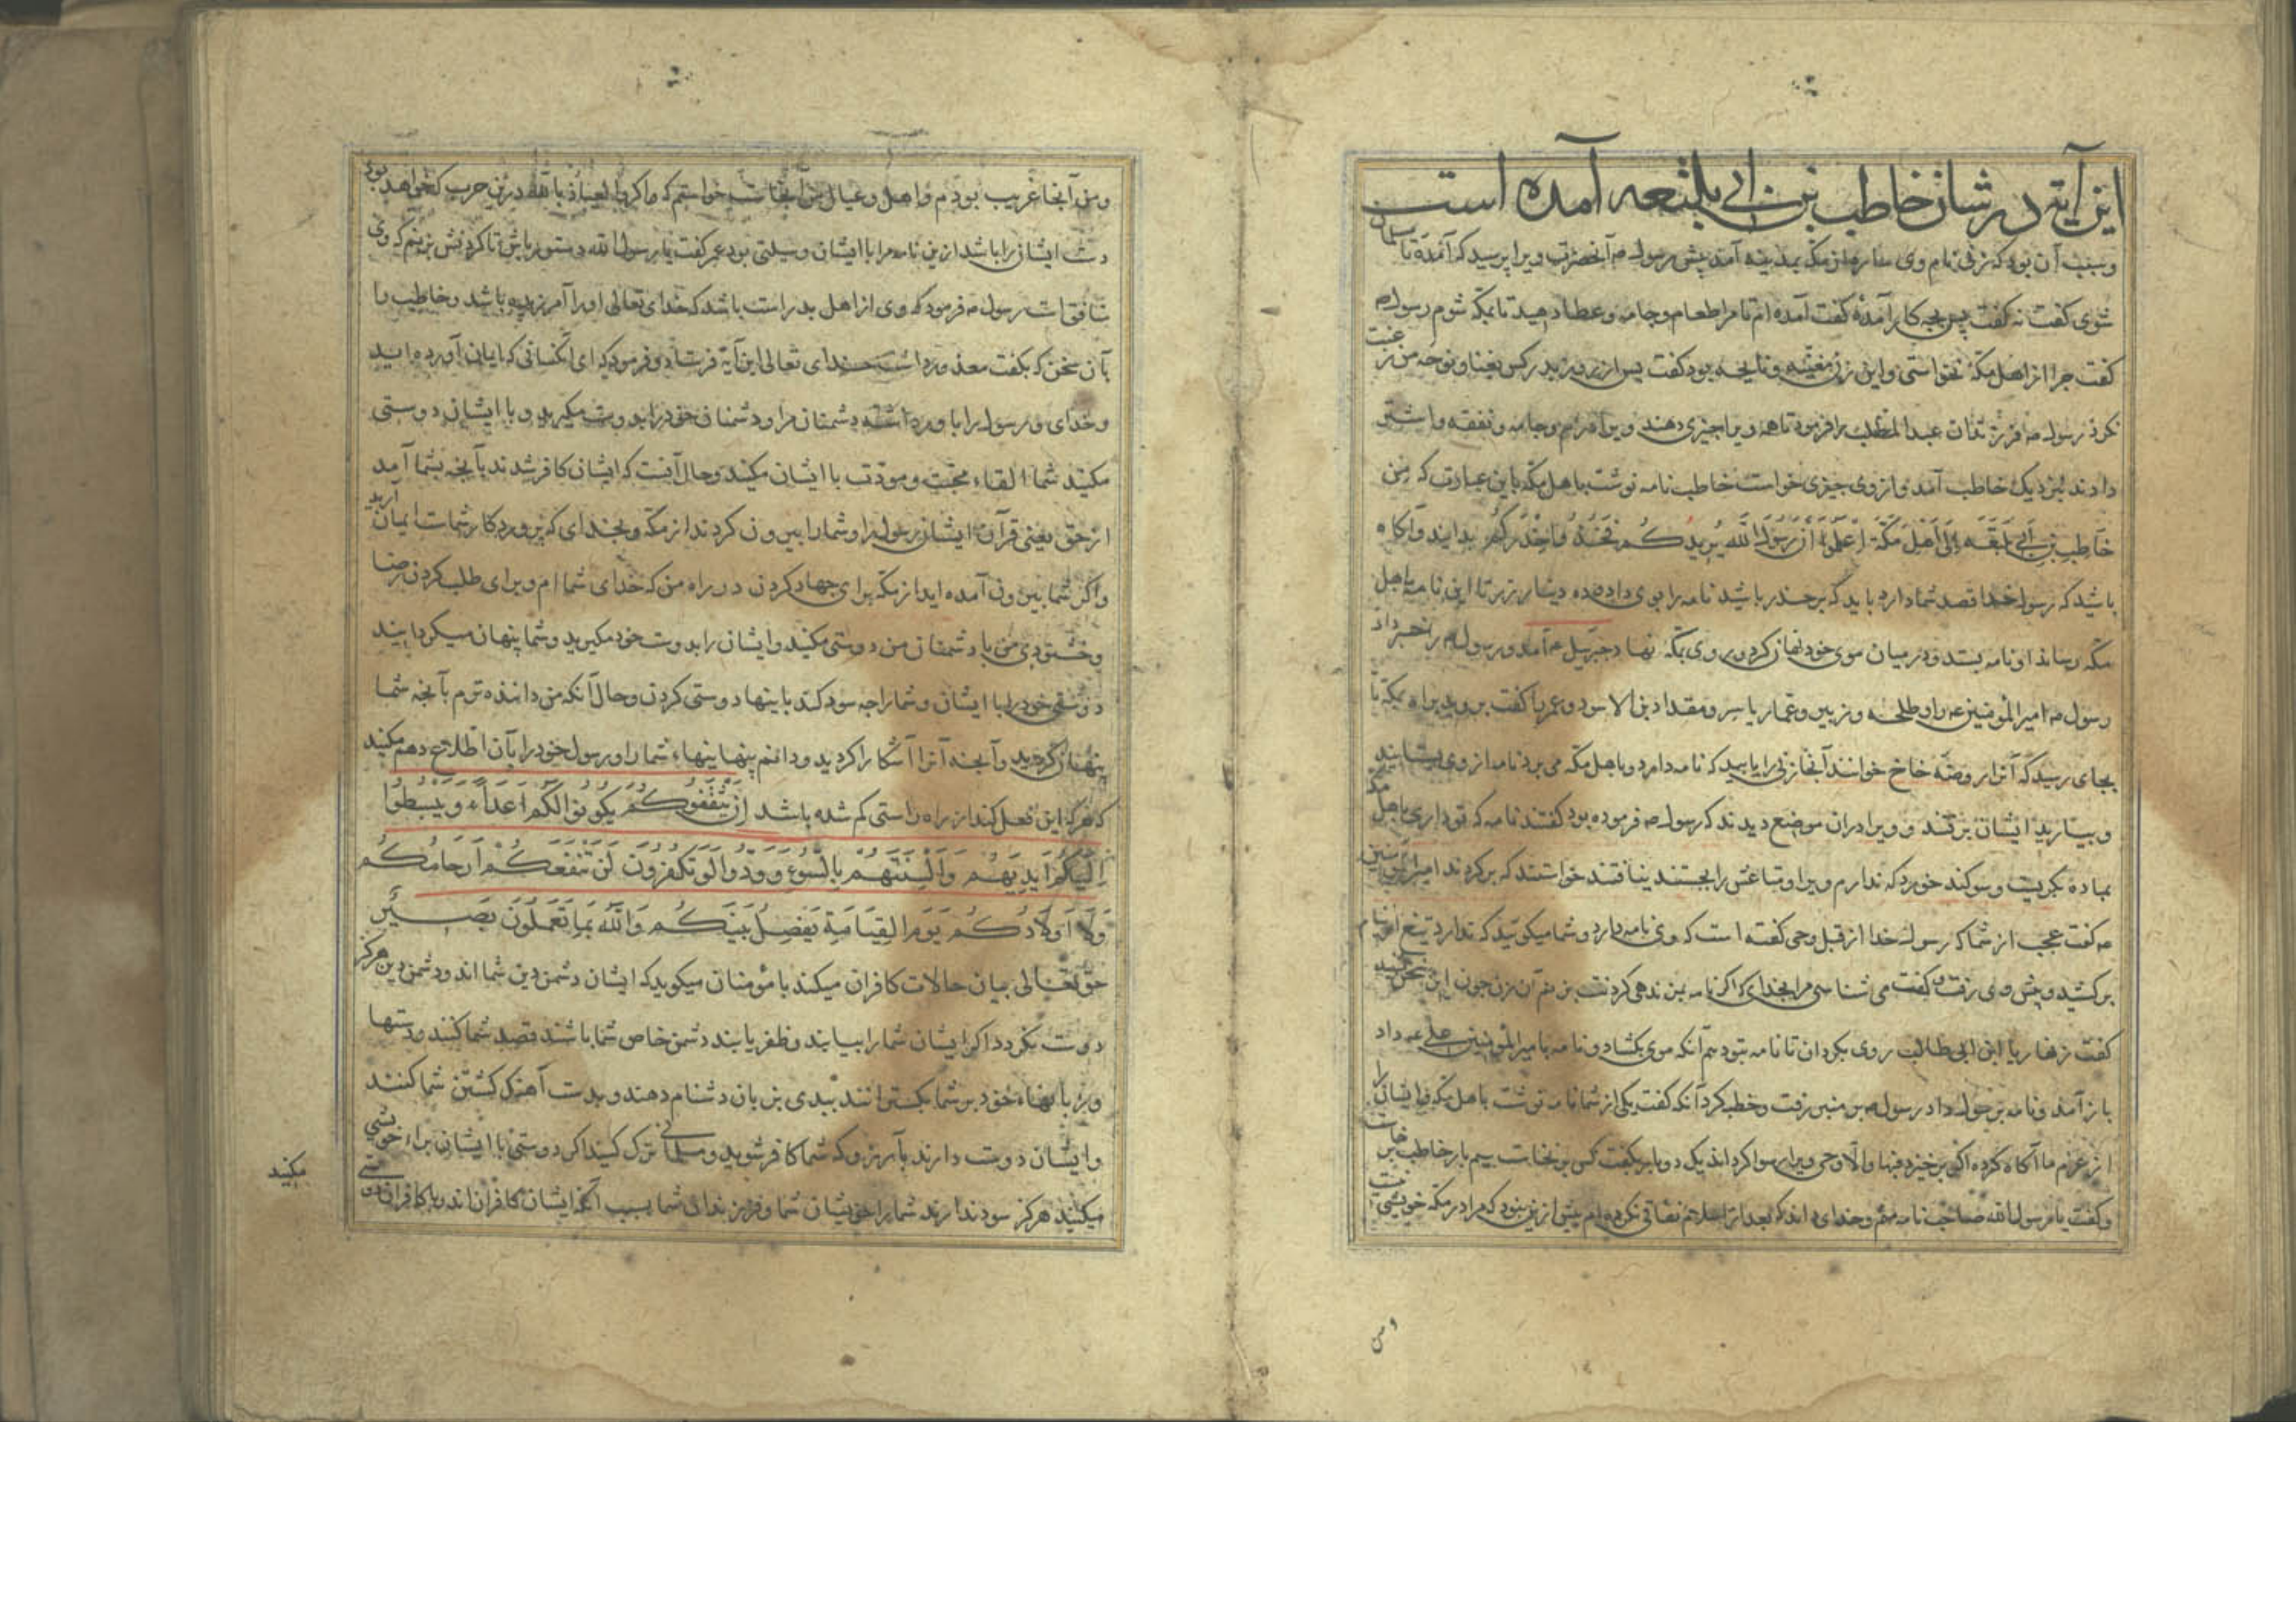 این آیة در شان خاطب بن ابی بلتعه آمده است
و سبب آن بود که زنی نام وی ساره از مکه بمدینه آمد پیش رسول ص آنحضرت ویرا پرسید که آمدهٔ تا مسلمان
شوی گفت نه گفت پس بچه کار آمدهٔ گفت آمده ام تا مرا طعام و جامه و عطا دهید تا بمکه شوم رسول ص
گفت چرا از اهل مکه نخواستی و این زن مغنیه و نایحه بود گفت پس از روز بدر کس بغنا و نوحه من رغبت
نکرد رسول ص فرزندان عبد المطلب را فرمود تا همه ویرا چیزی دهند ویرا درم و جامه و نفقه و اشتر
دادند بنزدیک خاطب آمد و از وی چیزی خواست خاطب نامه نوشت باهل مکه باین عبارت که من
خاطب بن ابی بلتعه الی اهل مکة اعلموا ان رسول الله یریدکم فخذوا حذرکم بدانید و آکاه
باشید که رسول خدا قصد شما دارد باید که بر حذر باشید نامه را بوی داد و ده دینار زر تا این نامه باهل
مکه رساند او نامه بستد و در میان موی خود نهان کرد و روی بمکه نهاد جبرئیل ع آمد و رسول ص را خبر داد
رسول ص امیر المؤمنین ع را و طلحه و زبیر و عمار یاسر و مقداد بن الاسود و عمر را گفت بروید براه مکه تا
بجای رسید که آنرا روضه خاخ خوانند آنجا زنی را یابید که نامه دارد و باهل مکه می برد نامه از وی بستانید
و بیارید ایشان برفتند و ویرا در ان موضع دیدند که رسول ص فرموده بود گفتند نامه که تو داری باهل مکه
بما ده بگریست و سوکند خورد که ندارم ویرا و متاعش را بجستند نیافتند خواستند که برگردند امیر المؤمنین
ع گفت عجب از شما که رسول خدا از قبل وحی گفته است که وی نامه دارد و شما میکوئید که ندارد تیغ از نیام
برکشید و پیش وی رفت و گفت می شناسی مرا بخدای که اگر نامه بمن ندهی گردنت بزنم آن زن چون این سخن شنید
گفت زنهار یا ابن ابی طالب روی بگردان تا نامه بتو دهم آنکه موی بگشاد و نامه بامیر المؤمنین علی ع داد
باز آمد و نامه برسول داد رسول ص بر منبر رفت و خطبه کرد آنکه گفت یکی از شما نامه نوشت باهل مکه و ایشان را
از عزم ما آکاه کرده اکر برخیزد فبها و الا وحی ویرا رسوا کرداند یک دو بار بگفت کس بر نخاست سیم بار خاطب برخاست
و گفت یا رسول الله صاحب نامه منم و خدای داند که بعد از اسلام نفاقی نکرده ام بیش از این نبود که مرا در مکه خویشی نیست
و من
و من آنجا غریب بودم و اهل و عیال من آنجاست خواستم که اگر العیاذ بالله درین حرب که خواهد بود
دست ایشان را باشد ازین نامه مرا با ایشان وسیلتی بود عمر گفت یا رسول الله دستور باش تا کردنش بزنم که وی
منافق است رسول ص فرمود که وی از اهل بدر است باشد که خدای تعالی او را آمرزیده باشد و خاطب را
بآن سخن که بگفت معذور داشت خدای تعالی این آیة فرستاد و فرمود که ای آنکسانی که ایمان آورده اید
و خدای و رسول را باور داشته دشمنان مرا و دشمنان خود را بدوست مگیرید و با ایشان دوستی
مکنید شما القاء محبت و مودت با ایشان میکنید و حال آنست که ایشان کافر شدند بآنچه بشما آمد
از حق یعنی قرآن ایشان رسول را و شما را بیرون کردند از مکه و بخدای که پروردکار شماست ایمان آرید
و اگر شما بیرون آمده اید از مکه برای جهاد کردن در راه من که خدای شما ام و برای طلب کردن رضا
و خشنودی من با دشمنان من دوستی مکنید و ایشان را بدوست خود مگیرید و شما پنهان میکردانید
دوستی خود را با ایشان و شما را چه سود کند باینها دوستی کردن و حال آنکه من داننده ترم بآنچه شما
پنهان کردید و آنچه آنرا آشکارا کردید و دانم پنهانیهاء شما را و رسول خود را بآن اطلاع دهم مکنید
که هر که این فعل کند از راه راستی کم شده باشد اِنْ یَثْقَفُوکُمْ یَکُونُوا لَکُمْ اَعْدَاءً وَ یَبْسُطُوا
اِلَیْکُمْ اَیْدِیَهُمْ وَ اَلْسِنَتَهُمْ بِالسُّوءِ وَ وَدُّوا لَوْ تَکْفُرُونَ لَنْ تَنْفَعَکُمْ اَرْحَامُکُمْ
وَلَا اَوْلَادُکُمْ یَوْمَ الْقِیَامَةِ یَفْصِلُ بَیْنَکُمْ وَاللّٰهُ بِمَا تَعْمَلُونَ بَصِیرٌ
حق تعالی بیان حالات کافران میکند با مؤمنان میکوید که ایشان دشمن دین شما اند و دشمن دین هرکز
دوست نکردد اگر ایشان شما را بیابند و ظفر یابند دشمن خاص شما باشند قصد شما کنند و دستها
و زبانهاء خود بر شما بگسترانند ببدی بزبان دشنام دهند و بدست آهنک کشتن شما کنند
و ایشان دوست دارند بآرزو که شما کافر شوید و مسلمانی ترک کنید اگر دوستی با ایشان براء خویشی
میکنید هرکز سود ندارند شما را خویشان شما و فرزندان شما بسبب آنکه ایشان کافران اند و با کافران دوستی
مکنید